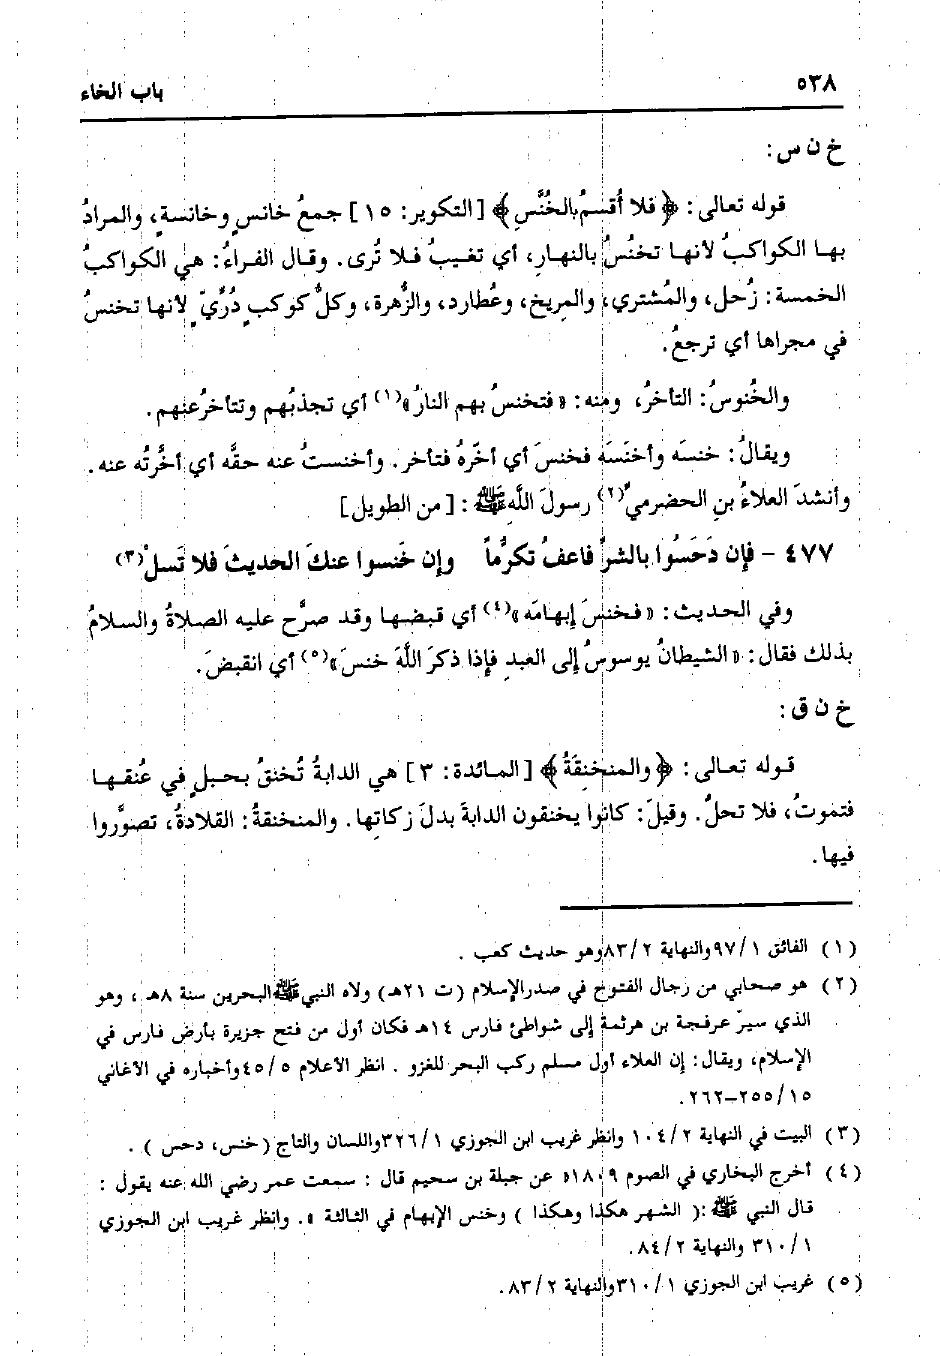 ٥٣٨ باب الخاء
خ ن س:
قوله تعالى: ﴿فلا أُقسمُ بالخُنَّسِ﴾ [التكوير: ١٥] جمعُ خانسٍ وخانسةٍ، والمرادُ
بها الكواكبُ لأنها تخنُسُ بالنهارِ، أي تغيبُ فلا تُرى. وقال الفراءُ: هي الكواكبُ
الخمسة: زُحل، والمُشتري، والمِريخ، وعُطارد، والزُّهرة، وكلُّ كوكبٍ دُرِّيٍّ لأنها تخنسُ
في مجراها أي ترجعُ.
والخُنوسُ: التأخرُ، ومنه: «فتخنسُ بهم النارُ»(١) أي تجذبُهم وتتأخرُ عنهم.
ويقالُ: خنسَه وأخنَسَه فخنسَ أي أخّرهُ فتأخر. وأخنستُ عنه حقَّه أي أخَّرتُه عنه.
وأنشدَ العلاءُ بنِ الحضرميِّ(٢) رسولَ اللَّهِ ﷺ: [من الطويل]
٤٧٧ - فإن دَحَسُوا بالشرِّ فاعفُ تكرُّماً وإن خَنسوا عنكَ الحديثَ فلا تَسلْ(٣)
وفي الحديث: «فخنسَ إبهامَه»(٤) أي قبضها وقد صرَّح عليه الصلاةُ والسلامُ
بذلك فقال: «الشيطانُ يوسوسُ إلى العبدِ فإذا ذكرَ اللَّهَ خنسَ»(٥) أي انقبضَ.
خ ن ق:
قوله تعالى: ﴿والمنخنِقَةُ﴾ [المائدة: ٣] هي الدابةُ تُخنقُ بحبلٍ في عُنقها
فتموتُ، فلا تحلُّ. وقيلَ: كانوا يخنقون الدابةَ بدلَ زكاتِها. والمنخنقةُ: القلادةُ، تصوَّروا
فيها.
(١) الفائق ١/ ٩٧ والنهاية ٢/ ٨٣ وهو حديث كعب .
(٢) هو صحابي من رجال الفتوح في صدر الإسلام (ت ٢١هـ) ولاه النبي ﷺ البحرين سنة ٨هـ ، وهو
الذي سيرّ عرفجة بن هرثمة إلى شواطئ فارس ١٤هـ فكان أول من فتح جزيرة بأرض فارس في
الإسلام، ويقال: إن العلاء أول مسلم ركب البحر للغزو . انظر الأعلام ٥/ ٤٥ وأخباره في الأغاني
١٥/ ٢٥٥-٢٦٢.
(٣) البيت في النهاية ٢/ ١٠٤ وانظر غريب ابن الجوزي ١/ ٣٢٦ واللسان والتاج (خنس، دحس ) .
(٤) أخرج البخاري في الصوم ١٨٠٩» عن جبلة بن سحيم قال : سمعت عمر رضي الله عنه يقول :
قال النبي ﷺ :( الشهر هكذا وهكذا ) وخنس الإبهام في الثالثة ». وانظر غريب ابن الجوزي
١/ ٣١٠ والنهاية ٢/ ٨٤.
(٥) غريب ابن الجوزي ١/ ٣١٠ والنهاية ٢/ ٨٣.